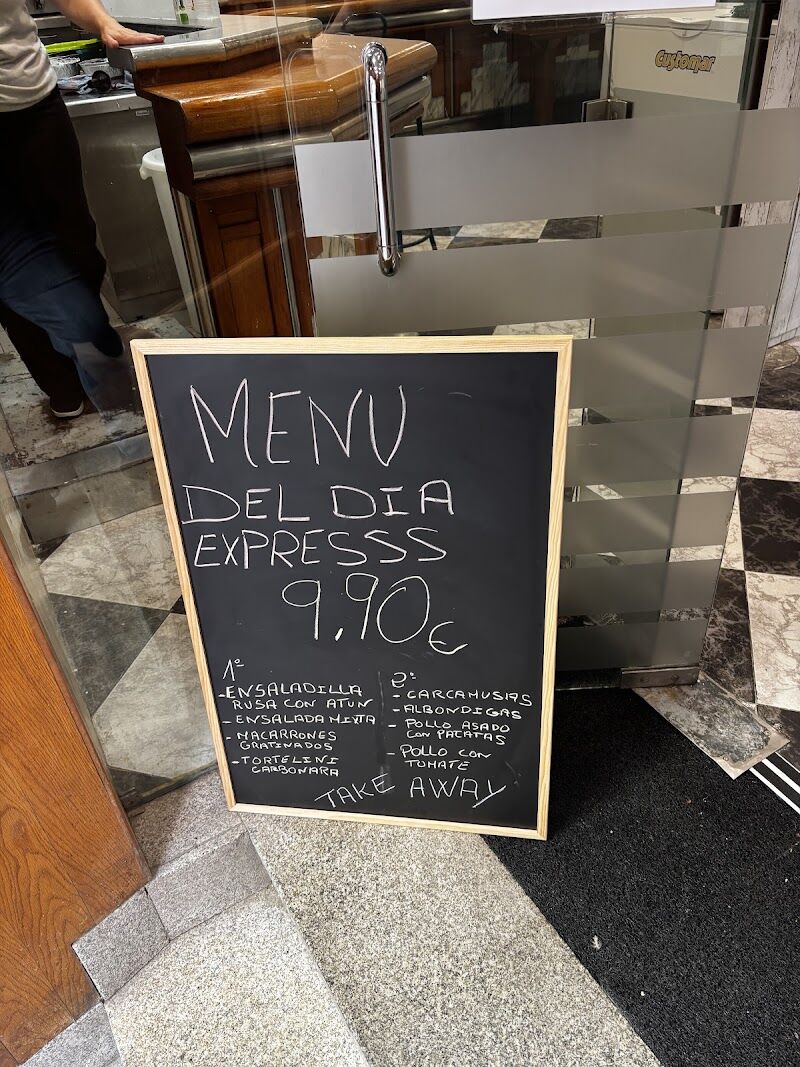 Customar
MENU
DEL DIA
EXPRESSS
9,90€
1º
-ENSALADILLA
RUSA CON ATUN
-ENSALADA MIXTA
-MACARRONES
GRATINADOS
-TORTELINI
CARBONARA
2º
-CARCAMUSAS
-ALBONDIGAS
-POLLO ASADO
CON PATATAS
-POLLO CON
TOMATE
TAKE AWAY